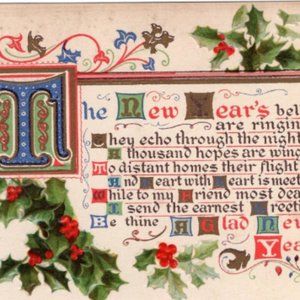 The New Year's bel
are ringin
They echo through the nigh
A thousand hopes are win
To distant homes their flight
And Heart with Heart is meet
While to my Friend most de
I send the earnest Greeti
Be thine A Glad New
Yea